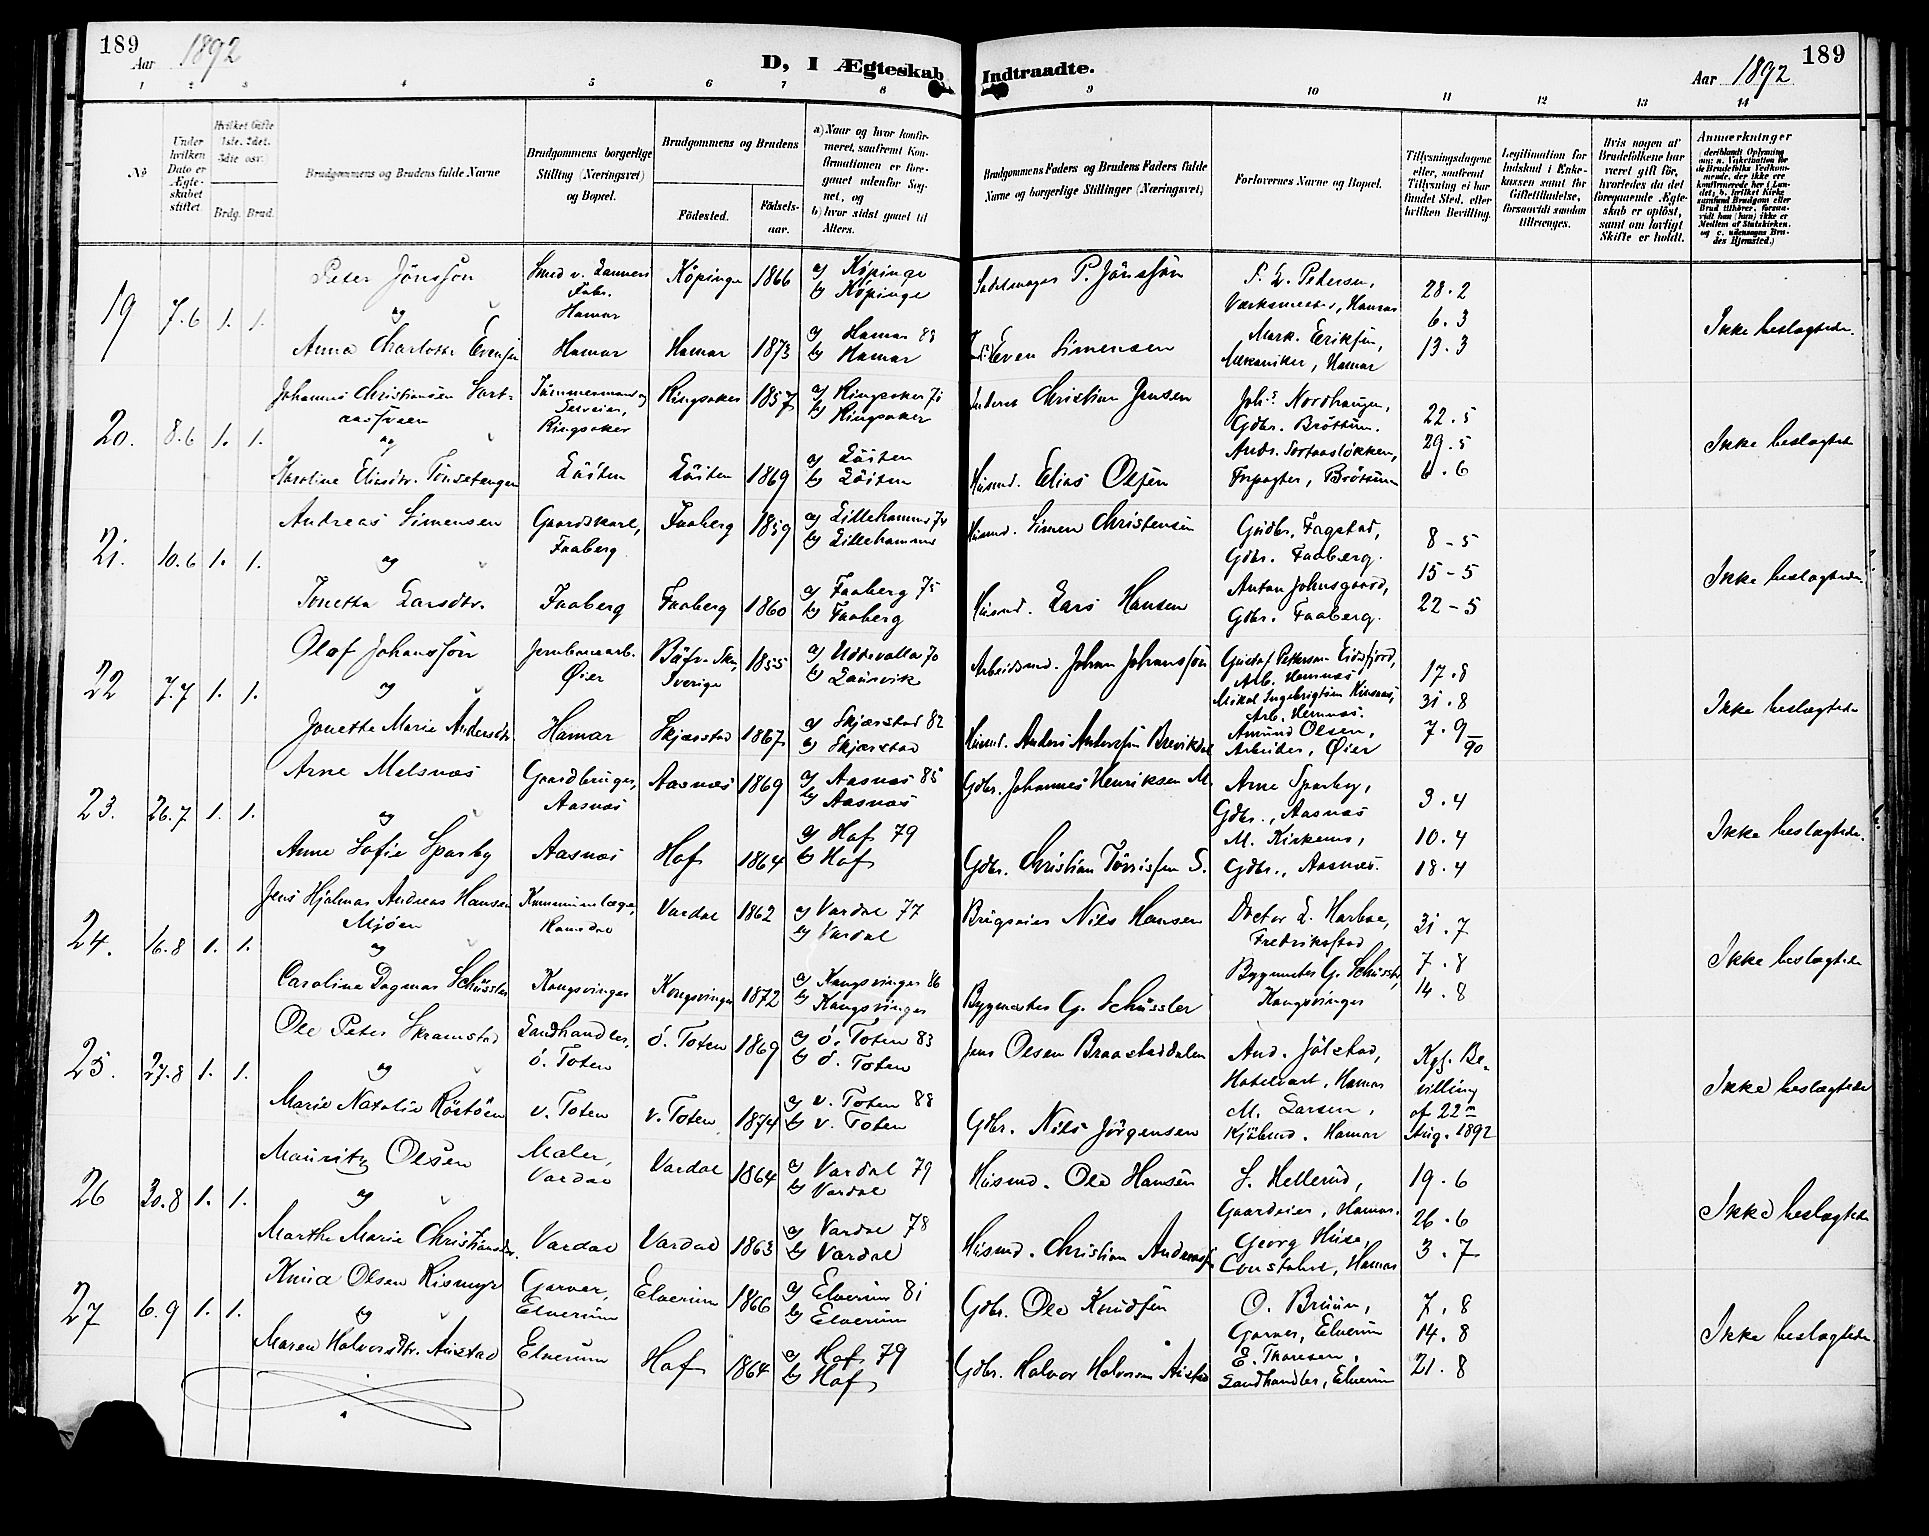 189
Aar 1892
D, I Ægteskab Indtraadte.
Aar 1892
189
1 2 3 4 5 6 7 8 9 10 11 12 13 14
No
Under hvilken Dato er Ægteskabet stiftet.
Hvilket Gifte 1ste. 2det. 3die osv.
Brdg. Brud.
Brudgommens og Brudens fulde Navne
Brudgommens borgerlige Stilling (Næringsvei) og Bopæl.
Brudgommens og Brudens
Fødested.
Fødselsaar.
a) Naar og hvor konfirmeret, saafremt Konfirmationen er foregaaet udenfor Sognet, og
b) hvor sidst gaaet til Alters.
Brudgommens Faders og Brudens Faders fulde Navne og borgerlige Stillinger (Næringsvei)
Forlovernes Navne og Bopæl.
Tillysningsdagene eller, saafremt Tillysning ei har fundet Sted, efter hvilken Bevilling.
Legitimation for Indskud i Enkekassen samt for Giftetilladelse, forsaavidt saadan tiltrænges.
Hvis nogen af Brudefolkene har været gift før, hvorledes da det foregaaende Ægteskab er opløst, samt om lovligt Skifte er holdt.
Anmerkninger
(deriblandt Oplysning om: a. Vaksination for de Brudefolks Vedkommende, der ikke ere konfirmerede her i Landet; b. hvilket Kirkesamfund Brudgom eller Brud tilhører, forsaavidt han (hun) ikke er Medlem af Statskirken, og c. udensogns Brudes Hjemsted.)
19 7.6 1. 1.
Peter Jönssön
og
Anna Charlotte Evensen
Smed v.
Fabr.
Hamar
Hamar
Köpinge 1866
Hamar 1873
a) Köpinge
b) Köpinge
a) Hamar 88
b) Hamar
Sadelmager P. Jönssön
Even Simensen
P. L. Petersen,
Værksmester, Hamar
Mark. Eriksen,
Mekaniker, Hamar
28.2
6.3
13.3
Ikke beslægtede.
20. 8.6 1. 1.
Johannes Christiansen
og
Karoline Eliasdtr. Tönsetangen
Tømmermand og
Ringsaker
Löiten
Ringsaker 1857
Löiten 1869
a) Ringsaker 71
b) Ringsaker
a) Löiten
b) Löiten
Inderst Christian Jensen
Husmd. Elias Olsen
Johs. Nordhaugen,
Gdbr. Brøttum.
Andr. Sortaasløkken,
Forpagter, Brøttum
22.5
29.5
6.6
Ikke beslægtede
21. 10.6 1. 1.
Andreas Simensen
og
Jonetta Larsdtr.
Gaardskarl,
Faaberg
Faaberg
Faaberg 1859
Faaberg 1860
a) Lillehammer 74
b) Lillehammer
a) Faaberg 75
b) Faaberg
Husmd. Simen Christensen
Husmd. Lars Hansen
Gudbr. Fagstad,
Gdbr. Faaberg.
Anton Johnsgaard,
Gdbr. Faaberg.
8-5
15-5
22-5
Ikke beslægtede
22 7.7 1. 1.
Olaf Johanssön
og
Jonetta Marie Andersdtr.
Jernbanearb.
Øier
Hamar
Bäfve Skn,
Sverige 1855
Skjærstad 1867
a) Uddevalla 70
b) Laurvik
a) Skjærstad 82
b) Skjærstad
Arbeidsmd. Johan Johanssön
Husmd. Anders Andersen Brevikdal
Gustaf Pettersen Eidsfjord,
Arb. Hemnæs
Mikal Ingebrigtsen
Arb. Hemnæs.
Amund Olsen,
Arbeider, Øier
17.8
31.8
7.9
90
Ikke beslægtede
23. 26.7 1. 1.
Arne Melsnæs
og
Anne Sofie Sparby
Gaardbruger,
Aasnæs
Aasnæs
Aasnæs 1869
Hof 1864
a) Aasnæs 85
b) Aasnæs
a) Hof 79
b) Hof
Gdbr. Johannes Henriksen M.
Gdbr. Christian Törrissen S.
Arne Sparby,
Gdbr., Aasnæs
M. Kirkenæs,
Gdbr., Aasnæs.
3.4
10.4
18.4
Ikke beslægtede.
24. 16.8 1. 1.
Jens Hjalmar Andreas Hansen
Mjøen
og
Caroline Dagmar Schüssler
Kommunelæge,
Ramsdal
Kongsvinger
Vardal 1862
Kongsvinger 1872
a) Vardal 77
b) Vardal
a) Kongsvinger 86
b) Kongsvinger
Brugseier Nils Hansen
Bygmester G. Schüssler
Doctor L. Harboe,
Fredriksstad
Bygmester G. Schüssler,
Kongsvinger
31.7
7.8
14.8
Ikke beslægtede
25. 27.8 1. 1.
Ole Peter Skramstad
og
Marie Natalie Röstöen
Landhandler,
ö. Toten
v. Toten
ö. Toten 1869
v. Toten 1874
a) ö. Toten 83
b) ö. Toten
a) v. Toten 88
b) v. Toten
Jens Olsen Braastaddalen
Gdbr. Nils Jörgensen
And. Jölstad,
Hotelvært, Hamar
M. Larsen,
Kjøbmd. Hamar
Kgl. Be-
villing
af 22n
Aug. 1892
Ikke beslægtede
26 30.8 1. 1.
Mauritz Olsen
og
Marthe Marie Christiansdtr.
Maler,
Vardal
Vardal
Vardal 1864
Vardal 1863
a) Vardal 79
b) Vardal
a) Vardal 78
b) Vardal
Husmd. Ole Hansen
Husmd. Christian Andreassen
S. Hellerud,
Gaardeier, Hamar.
Georg Huse,
Constabel, Hamar
19.6
26.6
3.7
Ikke beslægtede
27 6.9 1. 1.
Knud Olsen Rismyr
og
Maren Halvorsdtr. Austad
Garver,
Elverum
Elverum
Elverum 1866
Hof 1864
a) Elverum 81
b) Elverum
a) Hof 79
b) Hof
Gdbr. Ole Knudsen
Gdbr. Halvor Halvorsen Austad
O. Bruun,
Garver, Elverum
E. Thoresen,
Landhandler, Elverum
7.8
14.8
21.8
Ikke beslægtede.